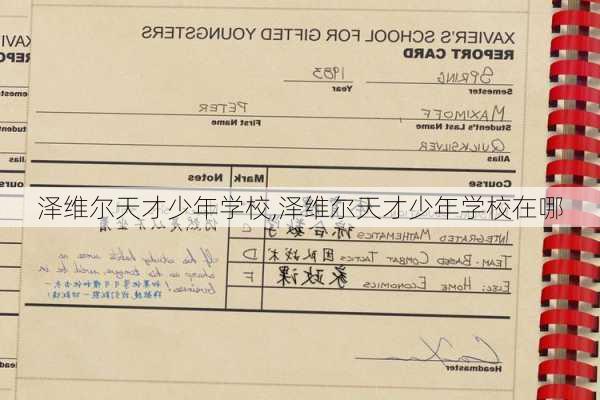 XAVIER'S SCHOOL FOR GIFTED YOUNGSTERS
REPORT CARD
SPRING 1983
Semester Year
MAXIMOFF PETER
Student's Last Name First Name
QUICKSILVER
Alias
Course Mark Notes
泽维尔天才少年学校,泽维尔天才少年学校在哪
INTEGRATED MATHEMATICS 综合数学 C
TEAM-BASED COMBAT TACTICS 团队战术 D
ELEC: HOME ECONOMICS 家政课 F
If his study habits were as
sharp as his tongue we'd be in
business!
Headmaster